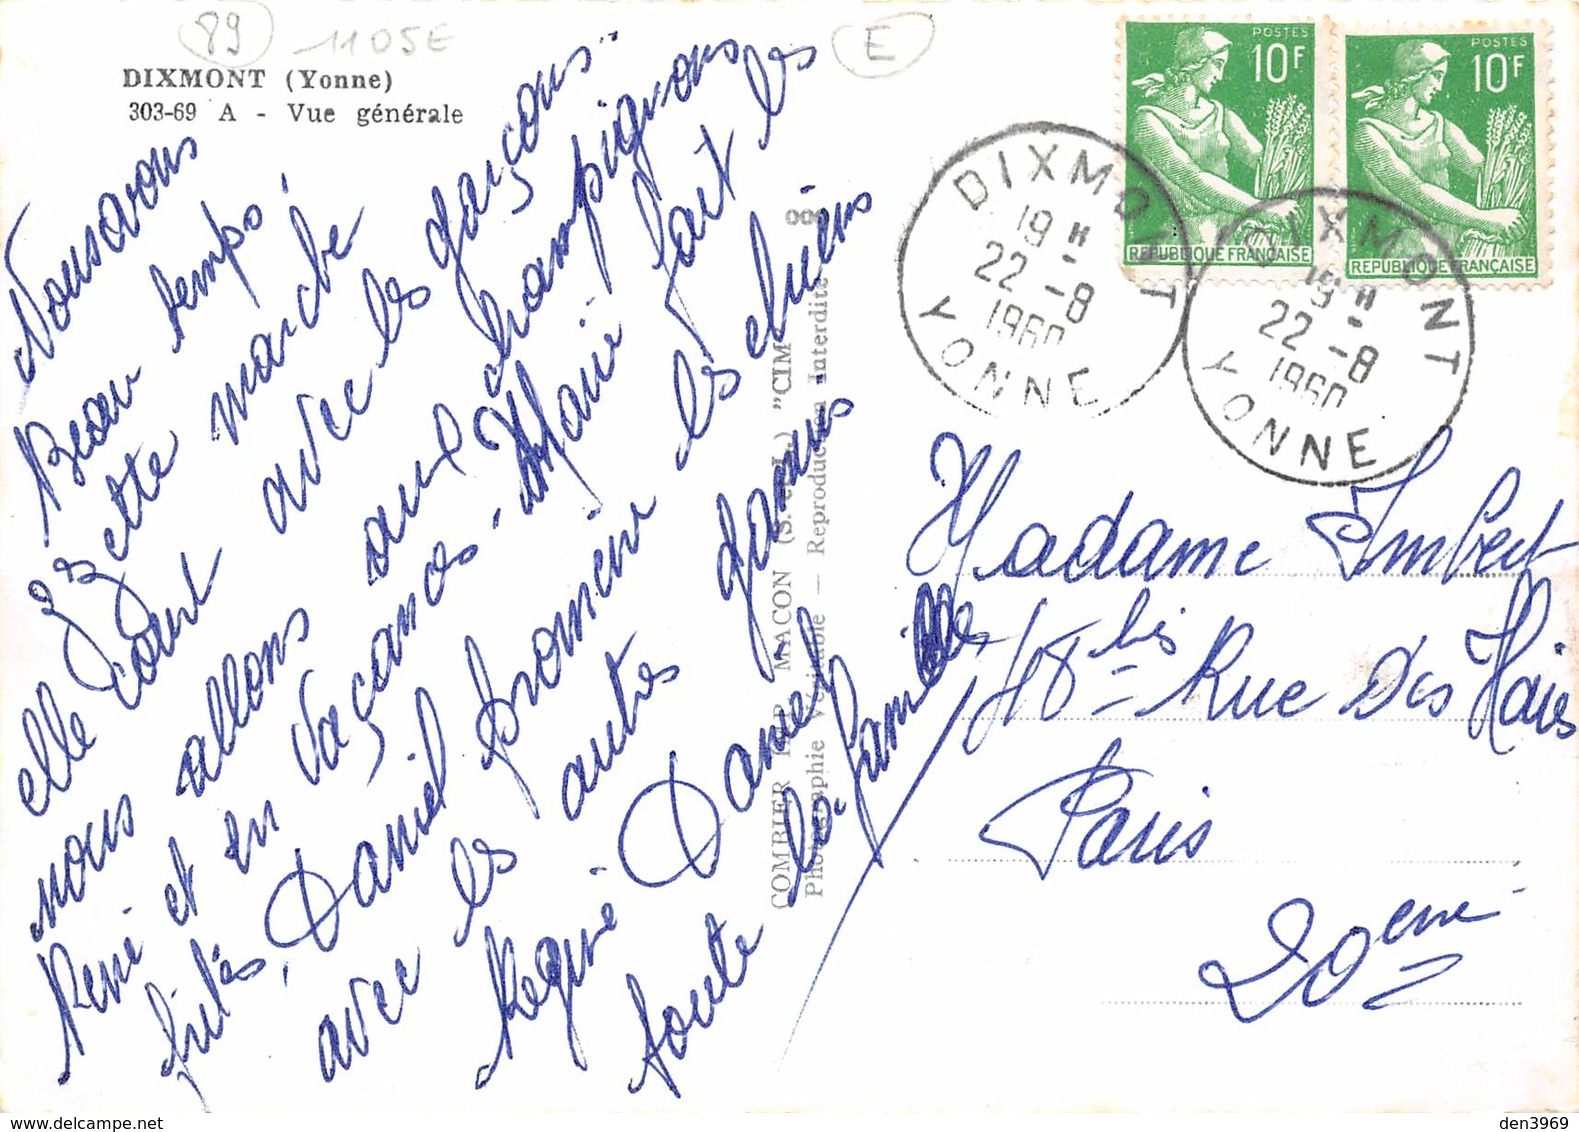 89
1105E
E
DIXMONT (Yonne)
303-69 A - Vue générale
Nous avons
Beau temps
Zezette marche
elle court avec les garçons.
nous allons aux champignons
René et en vacances. Marie fait les
Daniel promène les chiens
avec les autres gamins.
Reginé Daniel
toute la famille
COMBIER IMP MACON (S. et L.) "CIM"
Photographie Véritable — Reproduction Interdite
POSTES
10F
REPUBLIQUE FRANÇAISE
POSTES
10F
REPUBLIQUE FRANÇAISE
DIXMONT
19 H
22 -8
1960
YONNE
DIXMONT
19 H
22 -8
1960
YONNE
Madame Imbert
48 bis Rue Des Haies
Paris
20eme
den3969